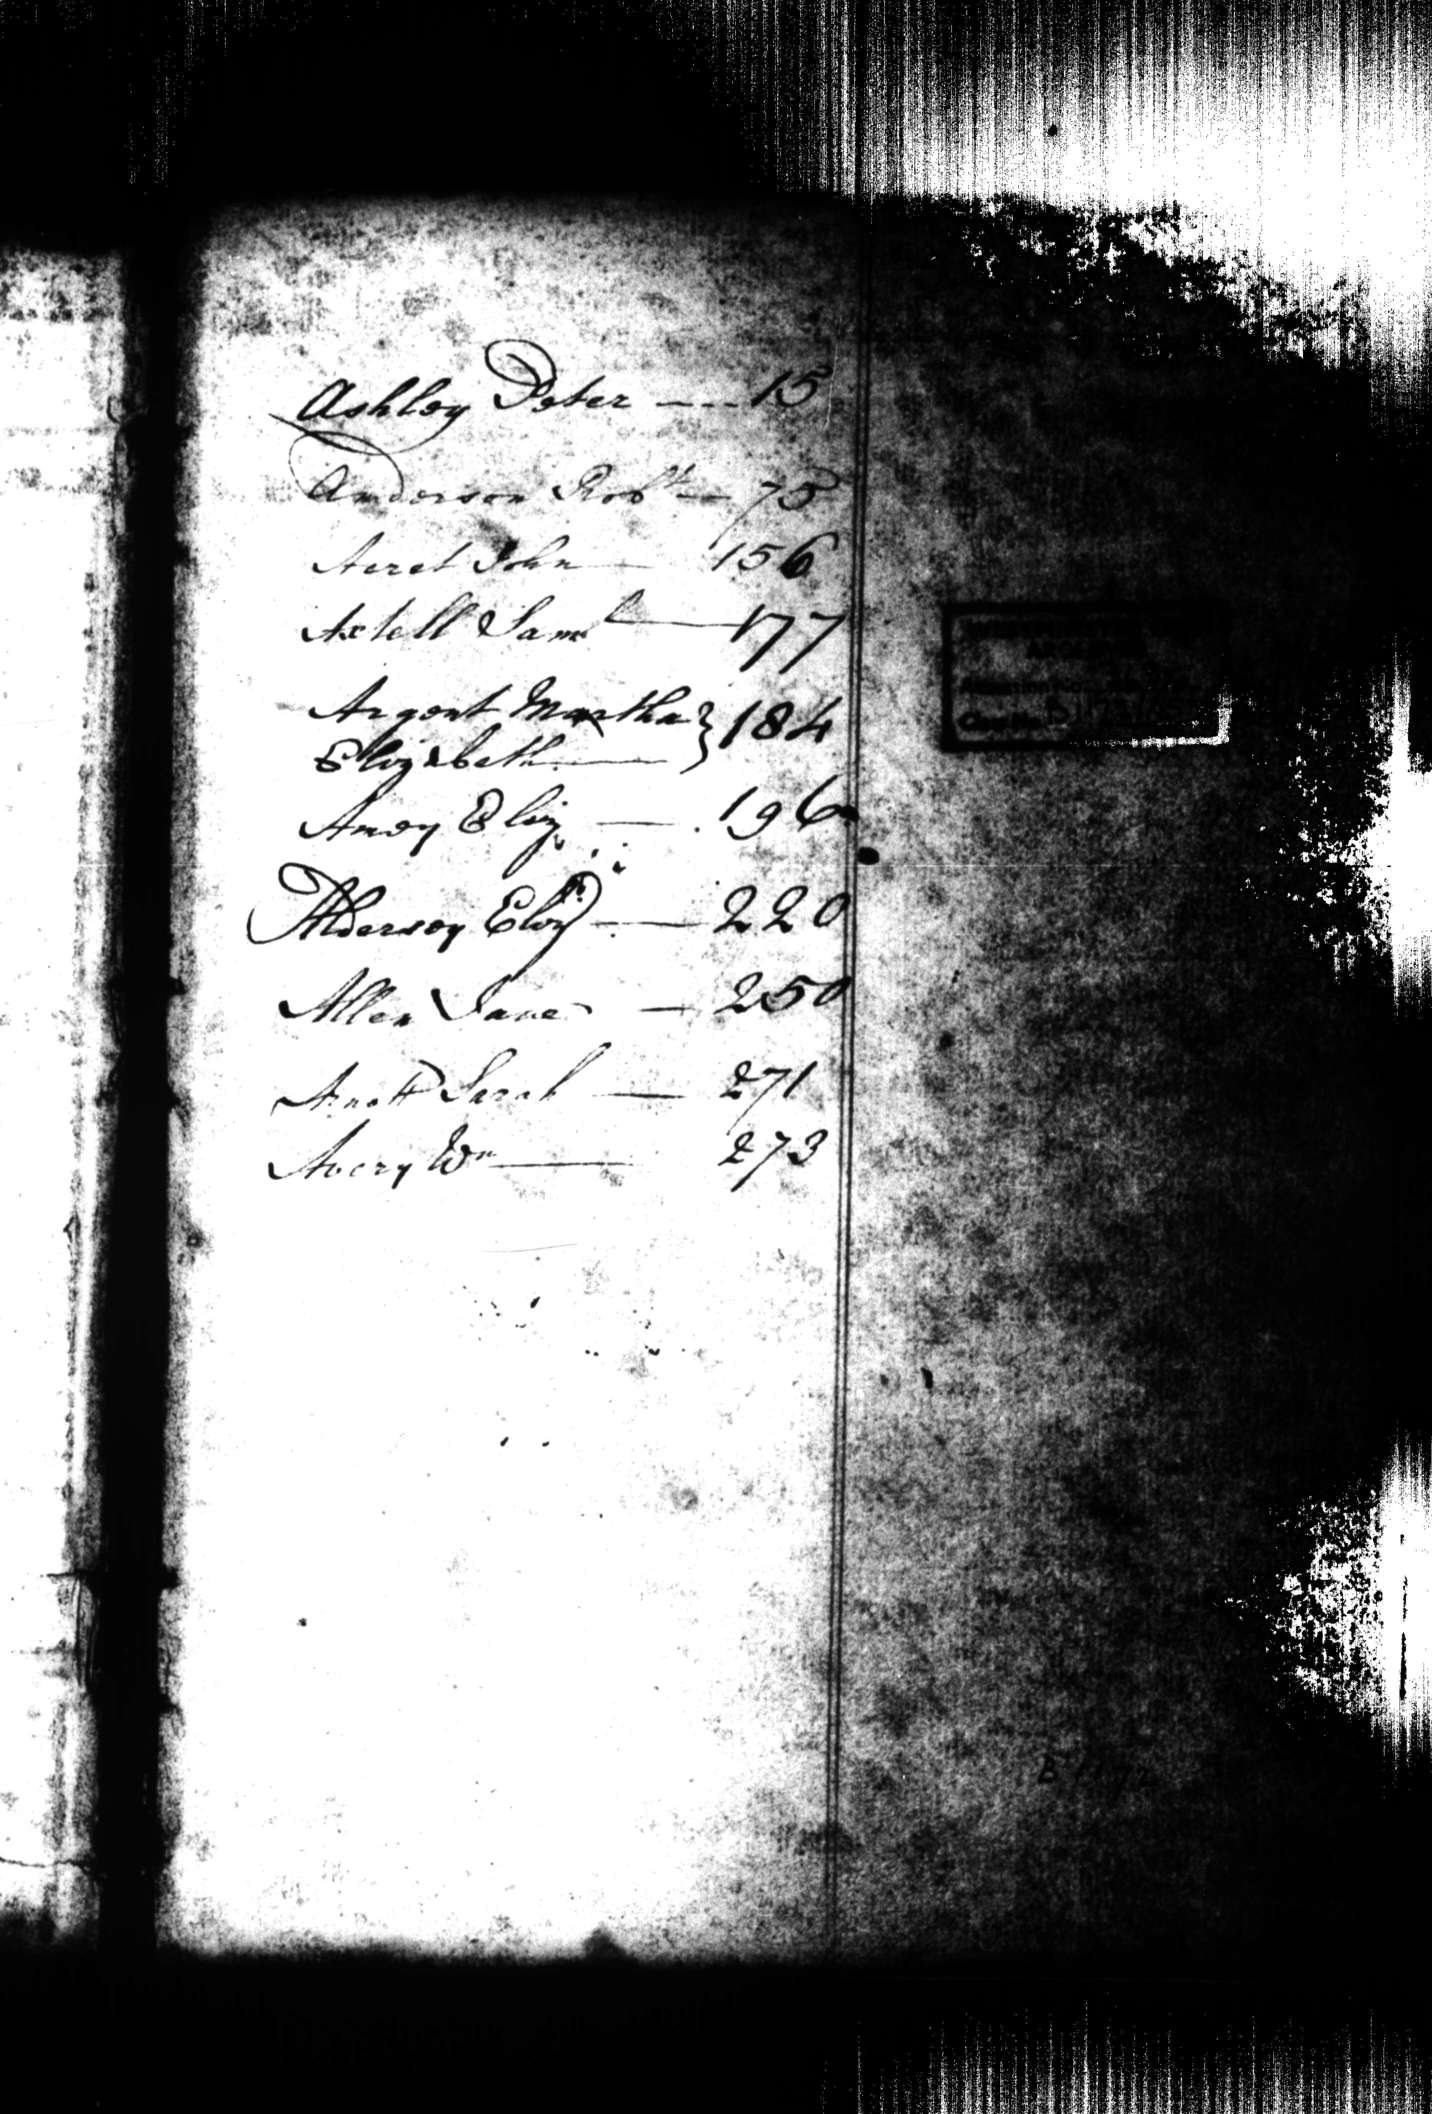 Ashley Peter — 15
Anderson Robt — 75
Aeret John — 156
Axtell Saml — 177
Argent Martha } 184
Elizabeth —
Amoy Eliz — 196
Alderson Eliz — 220
Allen Jane — 250
Arnott Sarah — 271
Avery Wm — 273